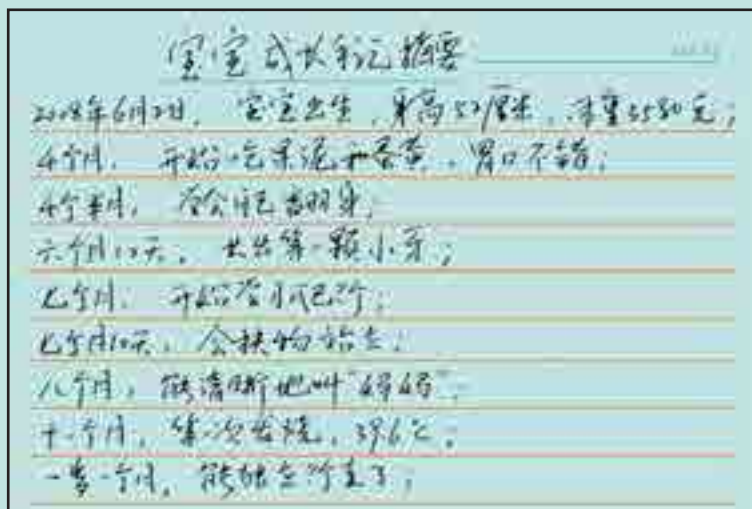 宝宝成长手记摘要
2008年6月2日，宝宝出生，身高52厘米，体重3580克；
4个月，开始吃果泥和蛋黄，胃口不错；
4个半月，学会自己翻身；
六个月12天，长出第一颗小牙；
七个月，开始学习爬行；
七个月10天，会扶物站立；
八个月，能清晰地叫“妈妈”；
十一个月，第一次发烧，39.6℃；
一岁一个月，能独立行走了；